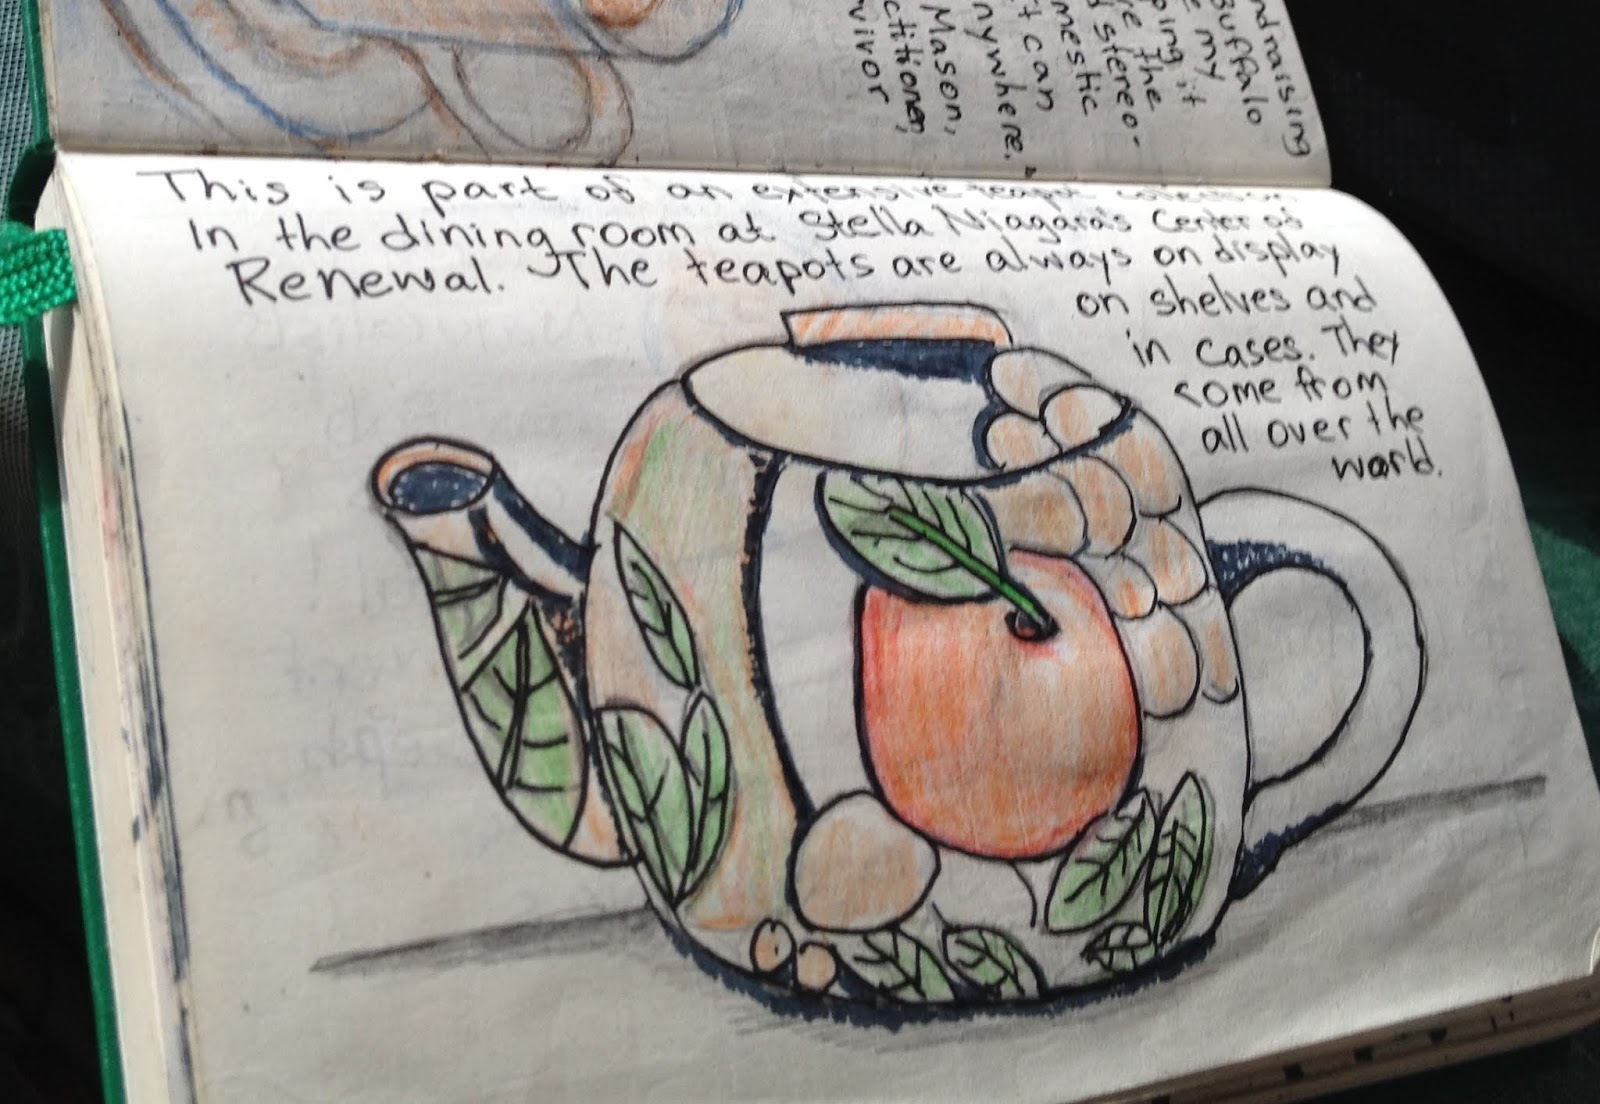 ndraising
Buffalo
e my
ping it
re the
d stereo-
mestic
t can
nywhere."
Mason,
ctitioner,
vivor
This is part of an extensive teapot collection
In the dining room at Stella Niagara's Center of
Renewal. The teapots are always on display
on shelves and
in cases. They
come from
all over the
world.